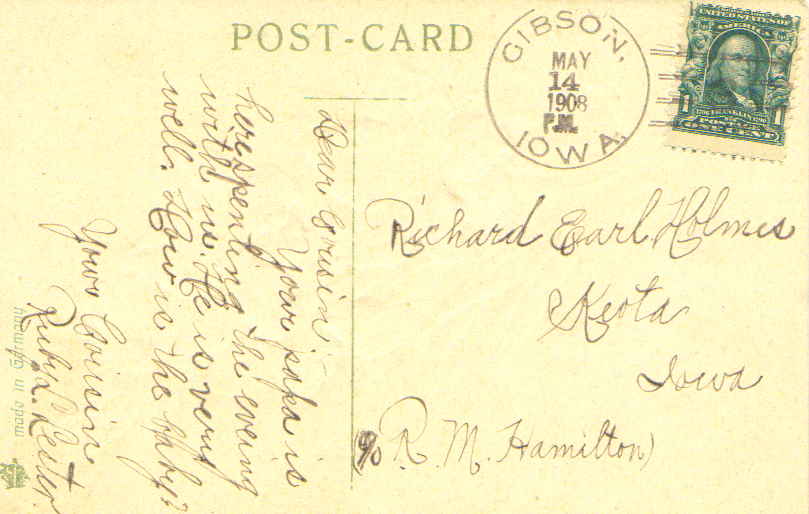 POST-CARD
GIBSON,
MAY
14
1908
P.M.
IOWA.
UNITED STATES OF
AMERICA
1 1706 FRANKLIN 1790 1
POSTAGE
ONE CENT
Dear Cousin
Your papa is
here spenting the evening
with us. He is very
well. How is the baby?
Yours Cousin
Ruby L. Lester.
Richard Earl Holmes
Keota
Iowa
(c/o R. M. Hamilton)
made in Germany